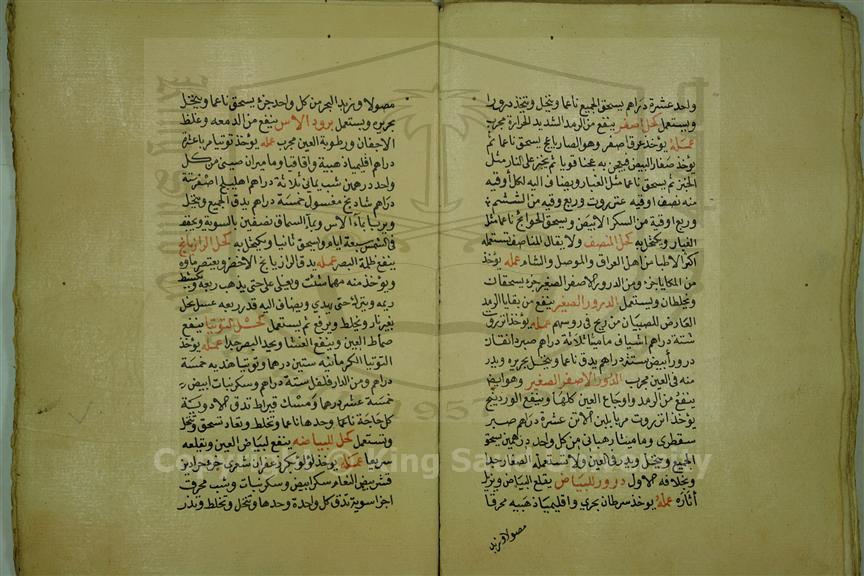 واحد عشرة دراهم يسحق الجميع ناعما وينخل ويتخذ درورا
ويستعمل كحل اصفر ينفع من الرمد الشديد الحرارة مجرب
عمله يوخذ عرقا صفر وهو الصاباغج يسحق ناعما ثم
يوخذ صفار البيض فيعجن به عجنا قويا ثم يخبز على النار مثل
الخبز ثم يسحق ناعما مثل الغبار ويضاف اليه لكل اوقيه
منه نصف اوقيه عنزروت وربع وقيه من الششم
وربع اوقية من السكر الابيض ويسحق الحوائج ناعما مثل
الغبار ويكتحل به كحل المنصف ولا يقال المناصف تستعمله
اكثر الاطبا من اهل العراق والموصل والشام عمله يوخذ
من الملكايا جزء ومن الدرور الاصفر الصغير جزء يسحقان
ويخلطان ويستعمل الدرور الصغير ينفع من بقايا الرمد
العارض للصبيان من ريح في روسهم عمله يوخذ انزروت
ستة دراهم اشياف ماميثا ثلاثة دراهم صبر دانقتان
درور ابيض ستة دراهم يدق ناعما وينخل بحريره ويدر
منه في العين مجرب الدرور الاصفر الصغير وهو ايض
ينفع من الرمد واوجاع العين كلها وينفع الوردينج
يوخذ انزروت مربا بلبن الاتن عشرة دراهم صبر
سقطري وماميثا رهباني من كل واحد درهمين يسحق
الجميع وينخل ويدر في العين ولا تستعمله الصفار جدا
وبخلافه الاول درور للبياض يقلع البياض ويزيل
اثاره عمله يوخذ سرطان بحري واقليميا ذهبيه محرقا
مصولا وزبد
مصولا وزبد البحر من كل واحد جزء يسحق ناعما وينخل
بحريره ويستعمل برود الاس ينفع من الدمعه وغلظ
الاجفان ورطوبة العين مجرب عمله يوخذ توتيا مرباعشرة
دراهم اقليميا ذهبية واقاقيا وماميران صيني من كل
واحد درهمين شب يماني ثلاثة دراهم اهليلج اصفر ستة
دراهم شادنج مغسول خمسة دراهم يدق الجميع وينخل
ويربا بماء الاس وبماء السماق نصفين بالسوية ويجفف
في الشمس سبعة ايام ويسحق ثانيا ويكتحل به كحل الرازيانج
ينفع ظلمة البصر عمله يدق الرازيانج الاخضر ويعتصر ماوه
ويوخذ منه مهما شئت ويغلى على نار حتى يذهب ربعه ويكشط
ريمه ويترك حتى يهدي ويضاف اليه قدر ربعه عسل نحل
بغير نار ويخلط ويرفع ثم يستعمل كحل التوتيا ينفع
ضماط العين وينفع الغشا ويحد البصر جدا عمله يوخذ
التوتيا الكرمانيه ستين درهما وتوتيا هنديه خمسة
دراهم ومن الدار فلفل ستة دراهم وسكر نبات ابيض
خمسة عشر درهما ومسك قيراط تدق الادوية
كل حاجة ناعما وحدها ناعما وتخلط ويعاد تسحق وتنخل
وتستعمل كحل للبياضه ينفع لبياض العين ويقلعه
سريعا عمله يوخذ لؤلؤ بكر زعفران شعري خزء حرادين
قشر بيض النعام سكر ابيض وسكر نبات وشب محرقت
اجزا سوية تدق كل واحدة وحدها وتنخل وتخلط وتذر